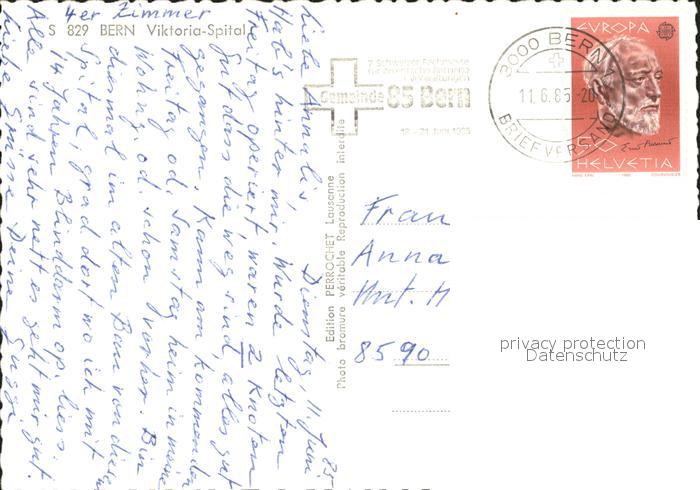 4er Zimmer
S 829 BERN Viktoria-Spital
Dienstag, 11. Juni 85
Liebe Annalis
Hab's hinter mir. Wurde letzten
Freitag operiert, waren 2 Knoten
Gut dass die weg sind, alles gut
gegangen. Kann am kommenden
Freitag od. Samstag heim in meine
Wohng. od. schon vorher. Bin
diesmal im alten Bau von diesem
Spital, grad dort wo ich mit
14 Jahren Blinddarm op. liess.
Alle sind sehr nett es geht mir gut.
Liebe Grüsse Deine Suggi
Edition PERROCHET Lausanne
Photo bromure véritable Reproduction interdite
Gemeinde 85 Bern
18.-21. Juni 1985
3000 BERN 1
11.6.85-20
BRIEFVERSAND
EUROPA
50
HELVETIA
Frau
Anna
Unt. H
8590
privacy protection
Datenschutz